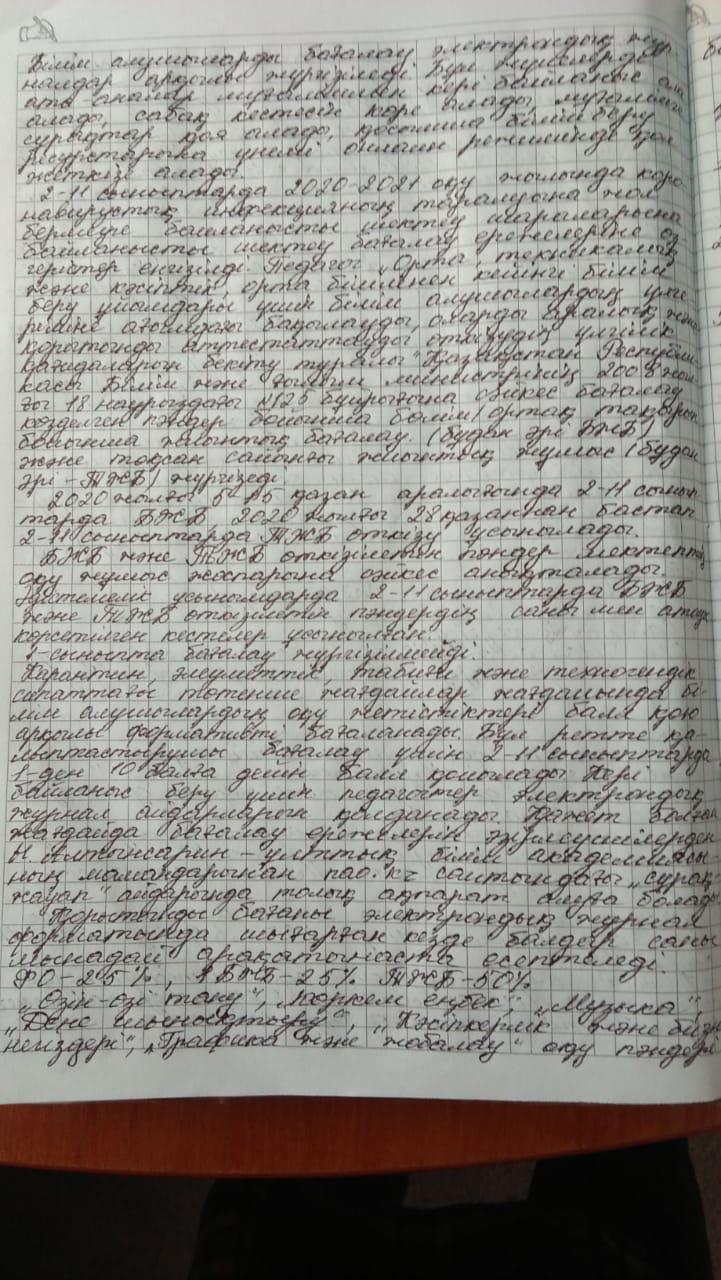 Білім алушыларды бағалау электрондық жур-
налдар арқылы жүргізіледі. Бұл
ата-аналар мұғаліммен кері байланыс ала
алады, сабақ кестесін көре алады, мұғалімге
сұрақтар қоя алады, қосымша білім беру
ресурстарына үнемі онлайн режимінде қол
жеткізе алады.
2-11 сыныптарда 2020-2021 оқу жылында коро-
навирустық инфекцияның таралуына жол
бермеуге байланысты шектеу шараларына
байланысты шектеу бағалау ережелеріне өз-
герістер енгізілді. Педагог "Орта техникалық
және кәсіптік, орта білімнен кейінгі білім
беру ұйымдары үшін білім алушылардың үлге-
ріміне ағымдағы бақылауды, оларды аралық және
қорытынды аттестаттауды өткізудің үлгілік
қағидаларын бекіту туралы" Қазақстан Республи-
касы Білім және ғылым министрінің 2008 жыл-
ғы 18 наурыздағы №125 бұйрығына сәйкес бағалау
көзделген пәндер бойынша бөлім/ортақ тақырып
бойынша жиынтық бағалау. (бұдан әрі БЖБ)
және тоқсан сайынғы жиынтық жұмыс (бұдан
әрі - ТЖБ) жүргізеді.
2020 жылғы 5-15 қазан аралығында 2-11 сынып-
тарда БЖБ, 2020 жылғы 28 қазаннан бастап
2-11 сыныптарда ТЖБ өткізу ұсынылады.
БЖБ және ТЖБ өткізілетін пәндер мектептің
оқу жұмыс жоспарына сәйкес анықталады.
Әдістемелік ұсынымдарда 2-11 сыныптарда БЖБ
және ТЖБ өткізілетін пәндердің саны мен атауы
көрсетілген кестелер ұсынылған.
1-сыныпта бағалау жүргізілмейді.
Карантин, әлеуметтік, табиғи және техногендік
сипаттағы төтенше жағдайлар жағдайында бі-
лім алушылардың оқу жетістіктері балл қою
арқылы формативті бағаланады. Бұл ретте қа-
лыптастырушы бағалау үшін 2-11 сыныптарда
1-ден 10 балға дейін балл қойылады. Кері
байланыс беру үшін педагогтер электрондық
журнал айдарларын қолданады. Қажет болған
жағдайда бағалау ережелерін әзірлеушілерден
Ы. Алтынсарин - ұлттық білім академиясы-
ның мамандарынан nao.kz сайтындағы "сұрақ-
жауап" айдарында толық ақпарат алуға болады.
Қорытынды бағаны электрондық журнал
форматында шығарған кезде балдар саны
мынадай арақатынаста есептеледі.
ФО-25%, БЖБ-25% ТЖБ-50%
"Өзін-өзі тану", "Көркем еңбек", "Музыка",
"Дене шынықтыру", "Кәсіпкерлік және бизнес
негіздері", "Графика және жобалау" оқу пәндері